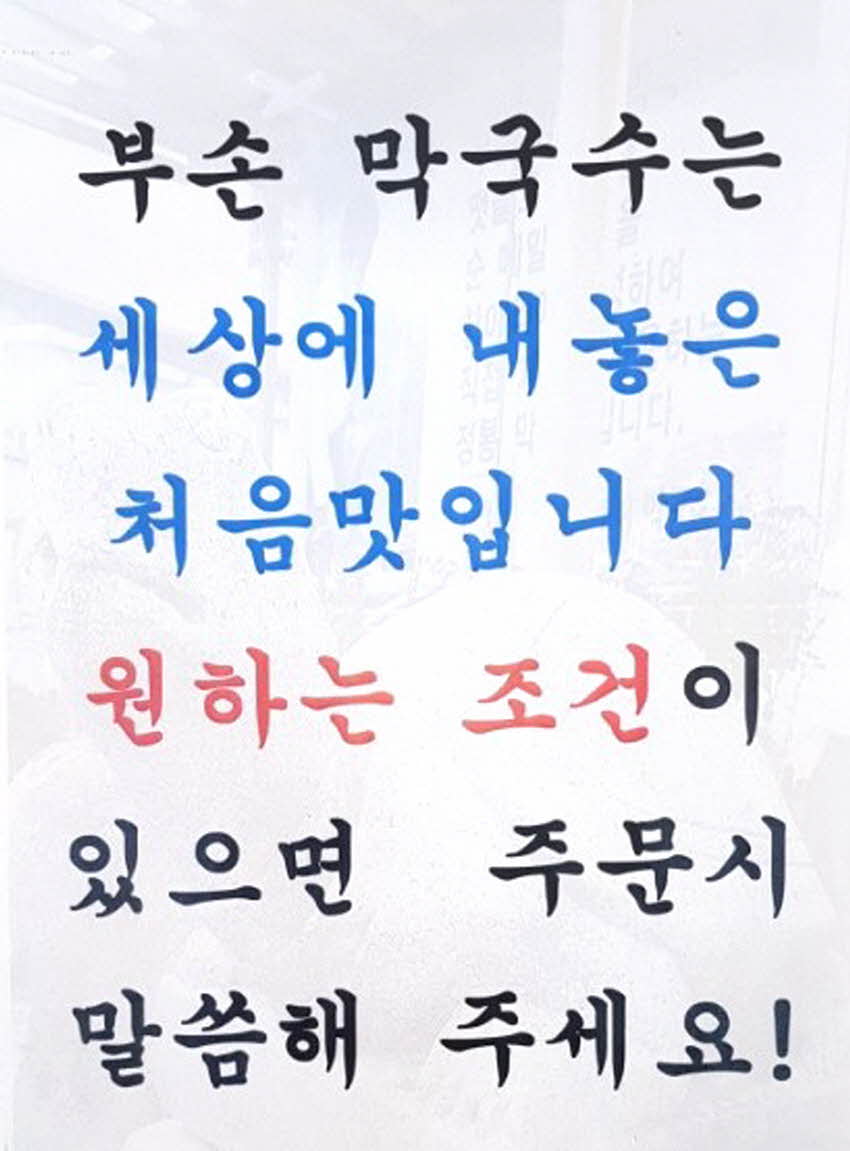 부손 막국수는
세상에 내놓은
처음맛입니다
원하는 조건이
있으면 주문시
말씀해 주세요!